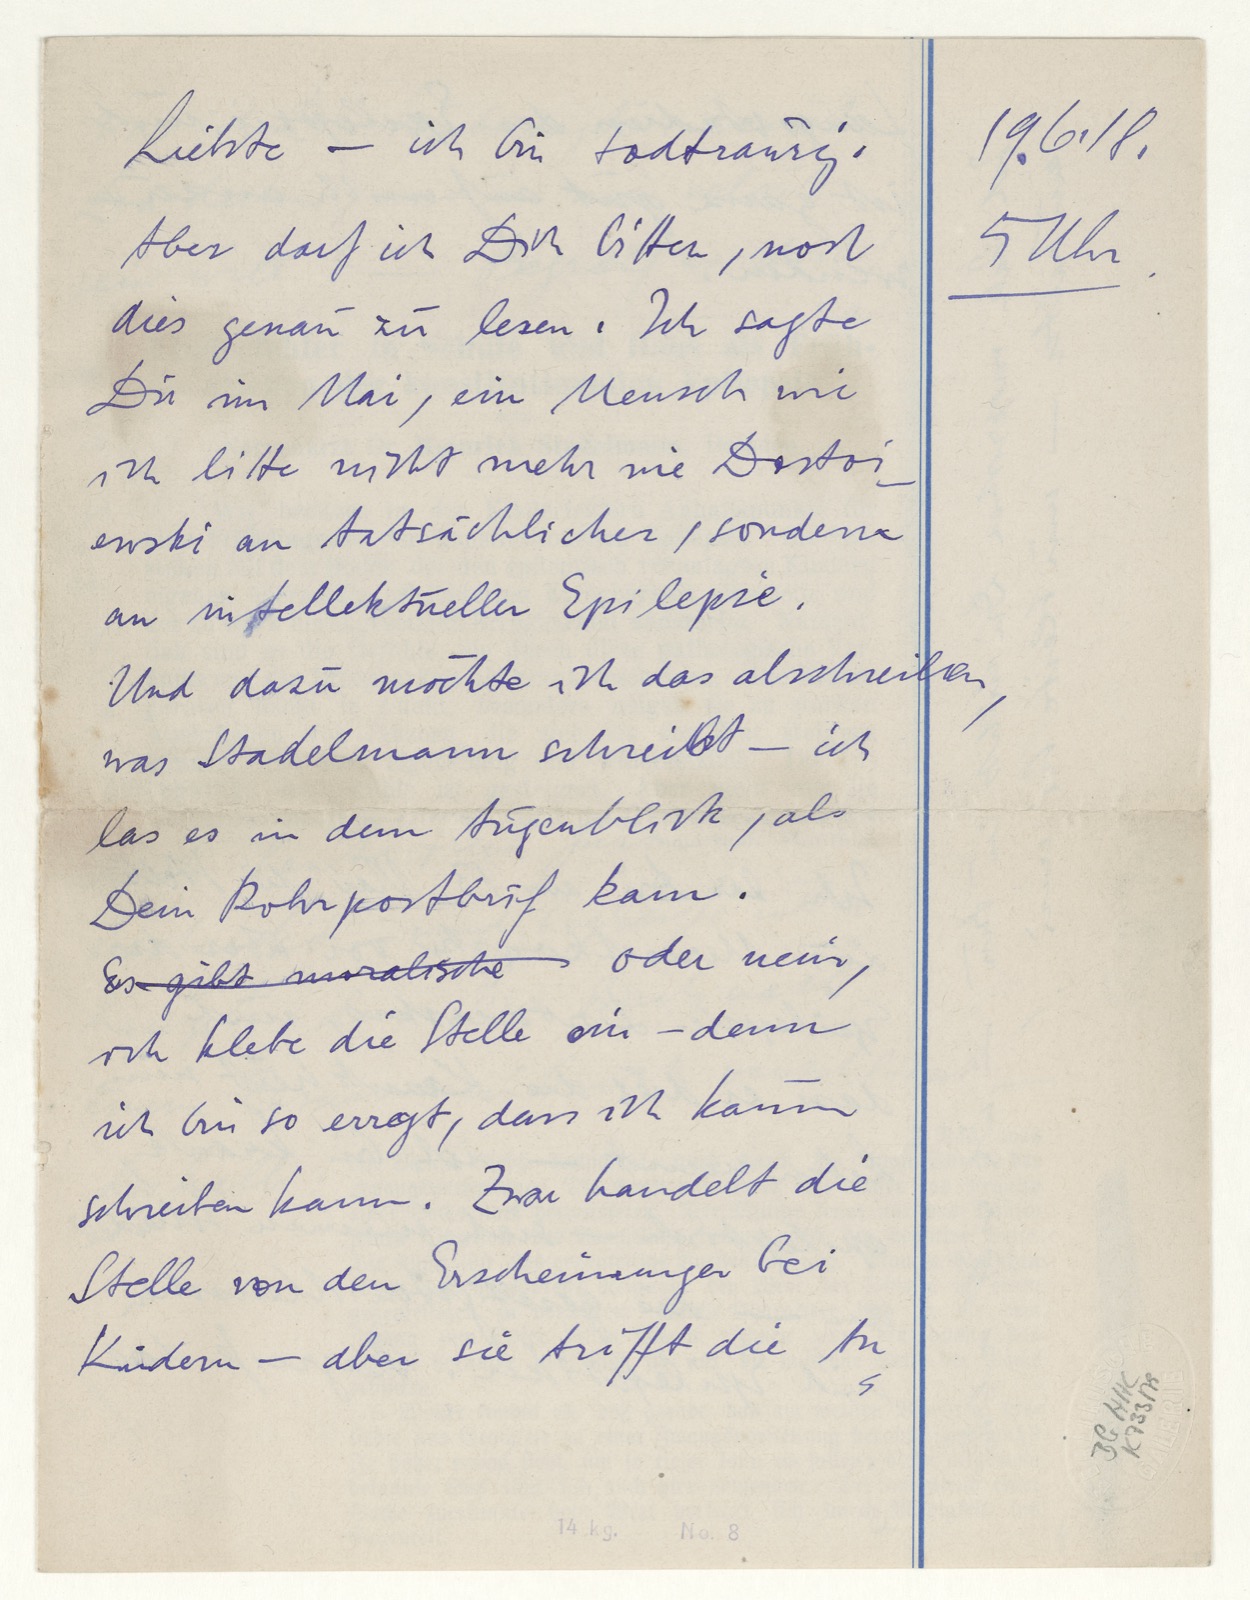 19.6.18.
5 Uhr.
Liebste — ich bin todtraurig.
Aber darf ich Dich bitten, noch
dies genau zu lesen. Ich sagte
Dir im Mai, ein Mensch wie
ich litte nicht mehr wie Dostoi-
ewski an tatsächlicher, sondern
an intellektueller Epilepsie.
Und dazu möchte ich das abschreiben,
was Stadelmann schreibt — ich
las es in dem Augenblick, als
Dein Rohrpostbrief kam.
Es gibt moralische oder nein,
ich klebe die Stelle ein – denn
ich bin so erregt, dass ich kaum
schreiben kann. Zwar handelt die
Stelle von den Erscheinungen bei
Kindern — aber sie trifft die An
BG HHC
K 733/79
14 kg. No. 8